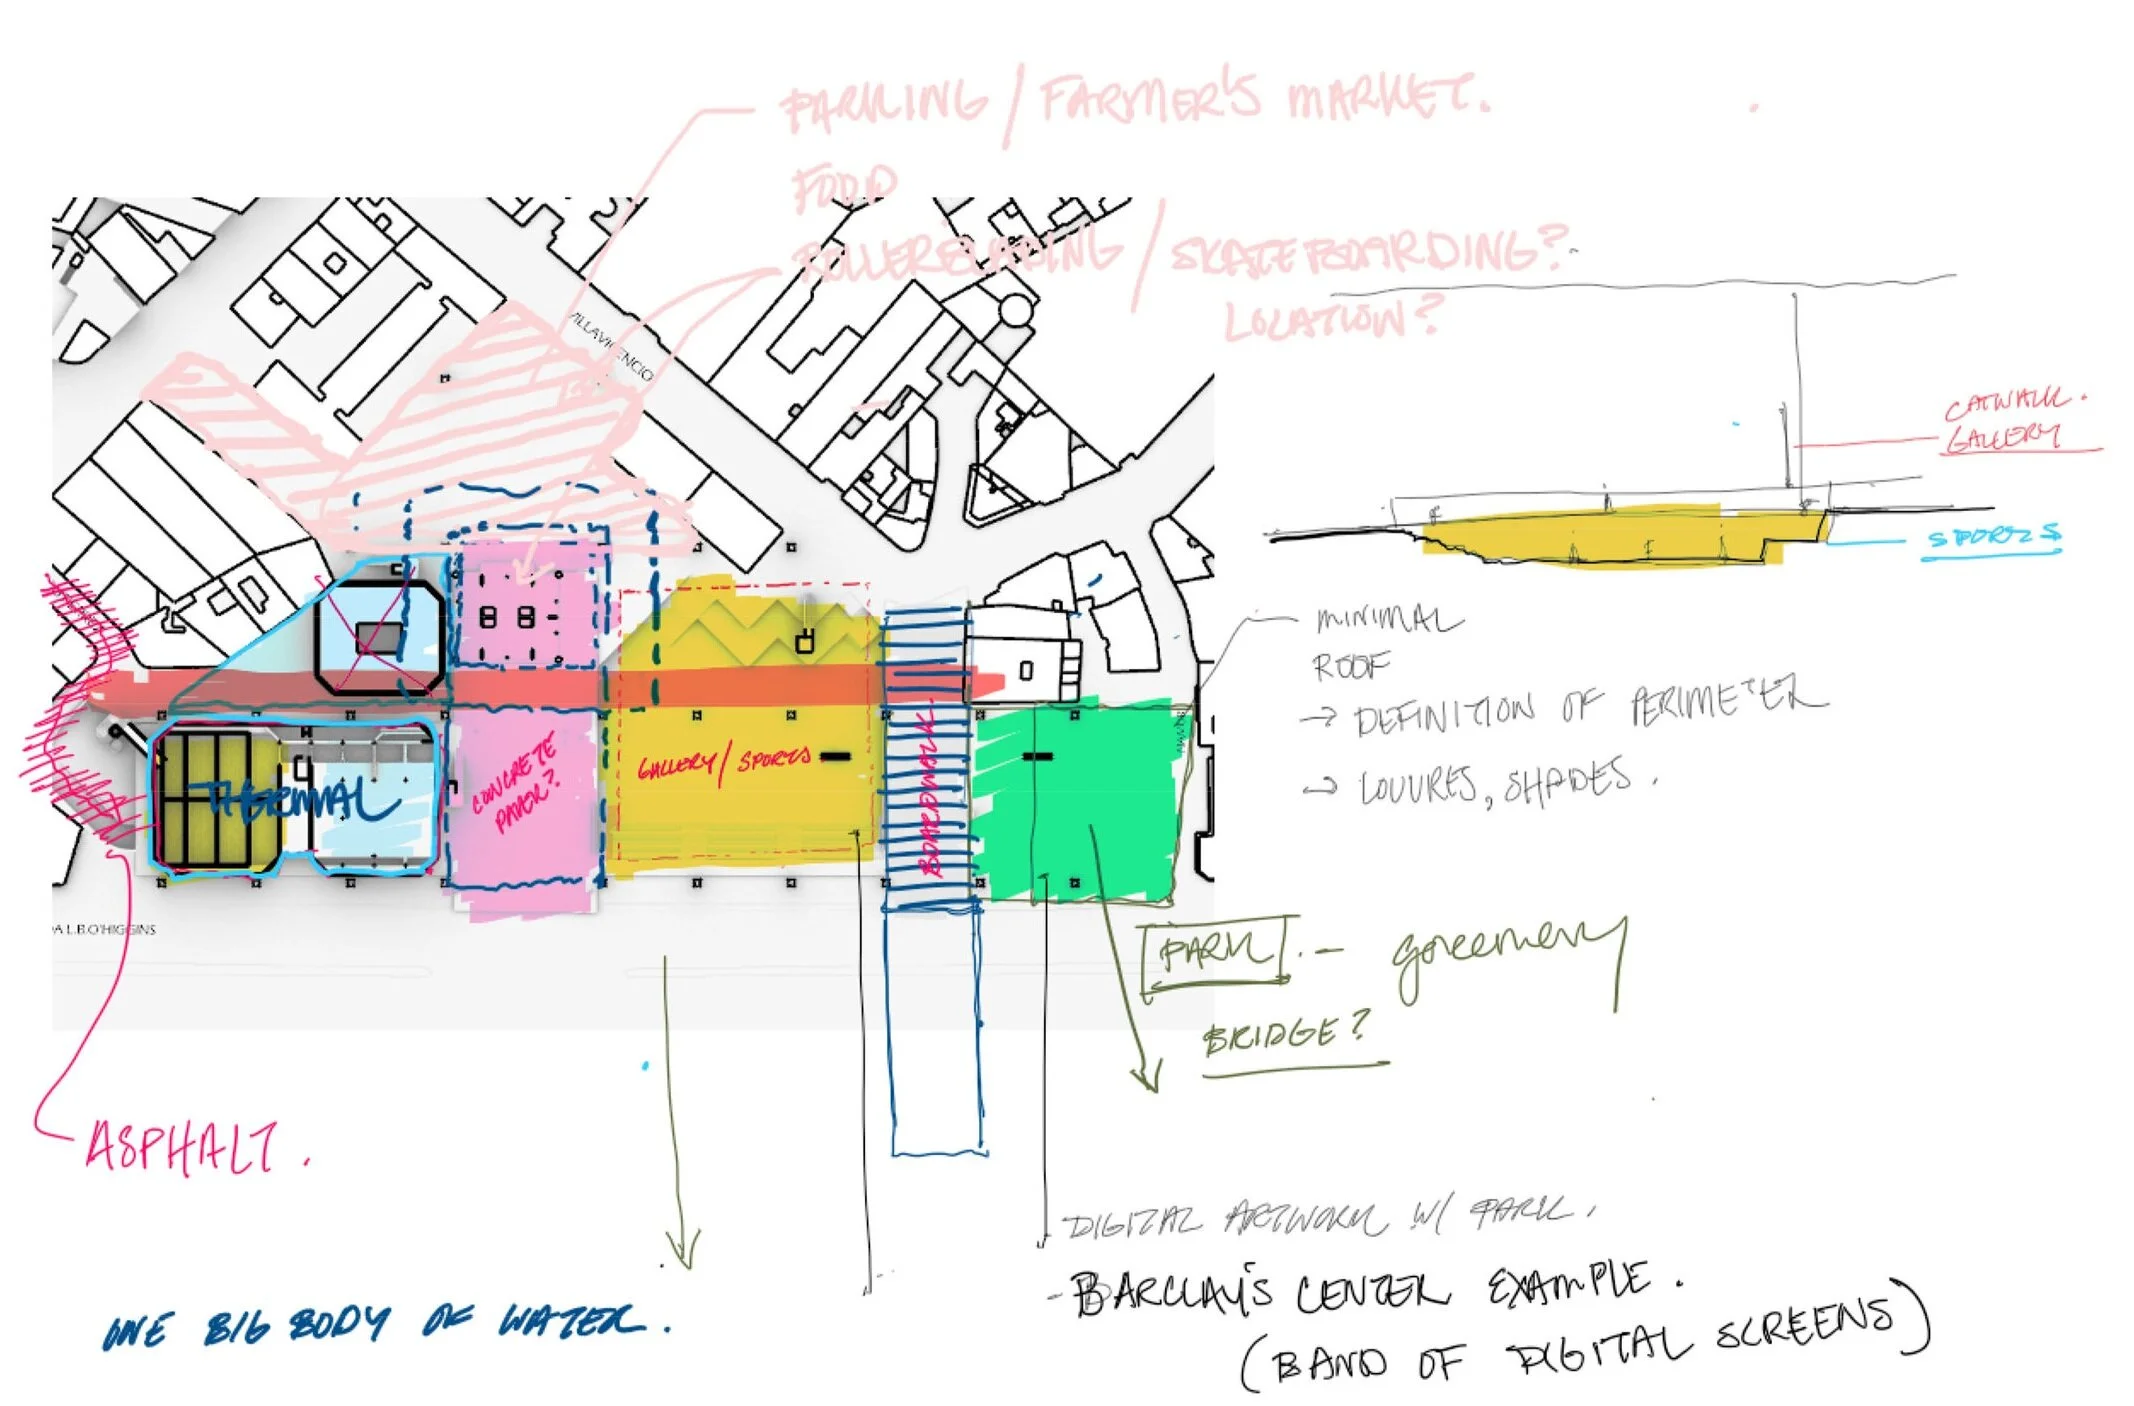 PARKING / FARMER'S MARKET.
FOOD
ROLLERBLADING / SKATEBOARDING?
LOCATION?
VILLAVICENCIO
CATWALK.
GALLERY
SPORTS
MINIMAL
ROOF
→ DEFINITION OF PERIMETER
→ LOUVRES, SHADES.
THERMAL
CONCRETE
PAVER?
GALLERY / SPORTS
BOARDWALK
A L.B.O'HIGGINS
PARK. - greenery
BRIDGE?
ASPHALT.
DIGITAL ARTWORK W/ PARK.
- BARCLAY'S CENTER EXAMPLE.
(BAND OF DIGITAL SCREENS)
ONE BIG BODY OF WATER.